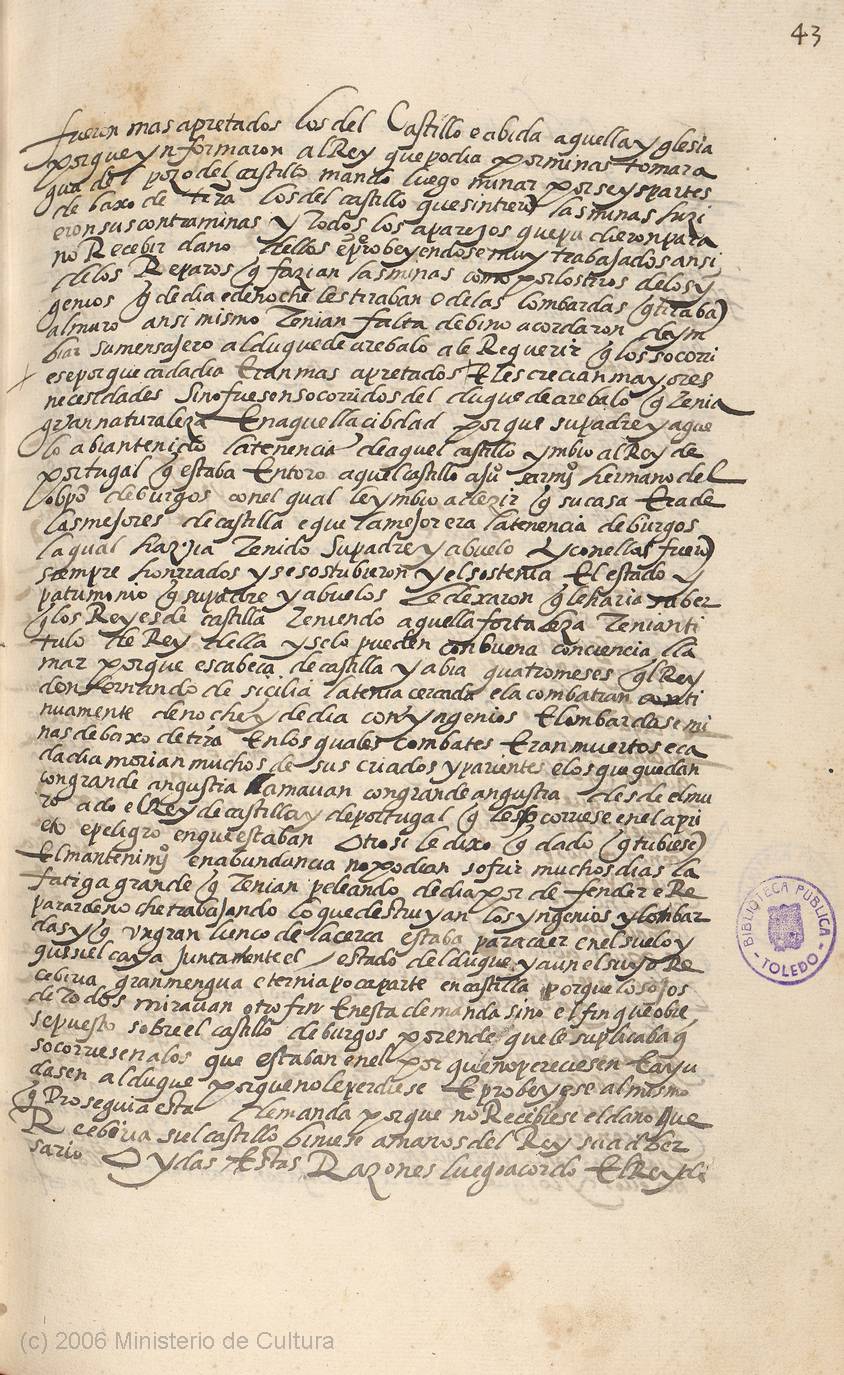 43
fueron mas apretados los del Castillo e abida aquella yglesia
porque ynformaron al Rey que podia por minas tomar a
gua del pozo del castillo mando luego minar por seys partes
de baxo de tirra los del castillo que sintierõ las minas hizi
eron sus contraminas y todos los aparejos que pudieron para
no Recebir daño dellos e probeyendose muy trabajados ansi
de los Reparos q̃ fazian las minas como por los tiros de los yn
genios q̃ de dia e de noche les tiraban e de las lombardas q̃ tirabã
al muro ansi mismo tenian falta de bino acordaron de ym
biar su mensajero al duque de arebalo a le Requerir q̃ los socorri
ese porque cada dia Eran mas apretados E les crecian mayores
necesidades Sino fuesen socorridos del duque de arebalo q̃ tenia
gran naturaleza En aquella cibdad porque su padre yague
lo abian tenido la tenencia de aquel castillo ymbio al Rey de
portugal q̃ estaba En toro aquel castillo a hermano del
obpõ de burgos con el qual le ymbio a dezir q̃ su casa Era de
las mejores de castilla e que la mejor era la tenencia de burgos
la qual tenido Su padre y abuelo y con ellas fuerõ
siempre honrrados y se sostubieron y el sostenia El estado y
patrimonio q̃ su padre y abuelos le dexaron q̃ le haria saber
q̃ los Reyes de castilla teniendo aquella fortaleza tenian ti
tulo de Rey della y se lo pueden con buena conciencia lla
mar porque es cabeça de castilla y abia quatro meses q̃l Rey
don fernando de sicilia la tenia cercada e la combatian conti
nuamente de noche y de dia con yngenios E lombardas e mi
nas de baxo de tirra En los quales combates Eran muertos e ca
da dia morian muchos de sus criados y parientes e los que quedan
con grande angustia llamauan con grande angustia desde el mu
ro a do el Rey de castilla y de portugal q̃ les socorriese en el apri
eto e peligro en que estaban Otrosi le dixo q̃ dado q̃ tubiesẽ
El mantenimõ en abundancia no podian sofrir muchos dias la
fatiga grande q̃ tenian peleando de dia por defender e Re
parar de noche trabajando lo que destruyan los yngenios y lombar
das y q̃ vn gran lienco de la cerca estaba para caer en el suelo y
que si el caya juntamente el estado del duque y aun el suyo Re
cebiria gran mengua e ternia poca parte en castilla porque los ojos
de todos mirauan otro fin En esta demanda sino el fin que obie
se puesto sobre el castillo de burgos por ende que le suplicaba q̃
socorriesen a los que estaban en el por que no pereciesen E ayu
dasen al duque porque no le perdiese E probeyese al mismo
q̃ Proseguia esta demanda porque no Recibiese el daño que
Recebiria si el castillo biniese a manos del Rey su adber
sario Oydas Estas Razones luego acordo El Rey de
BIBLIOTECA PÚBLICA
- TOLEDO -
(c) 2006 Ministerio de Cultura